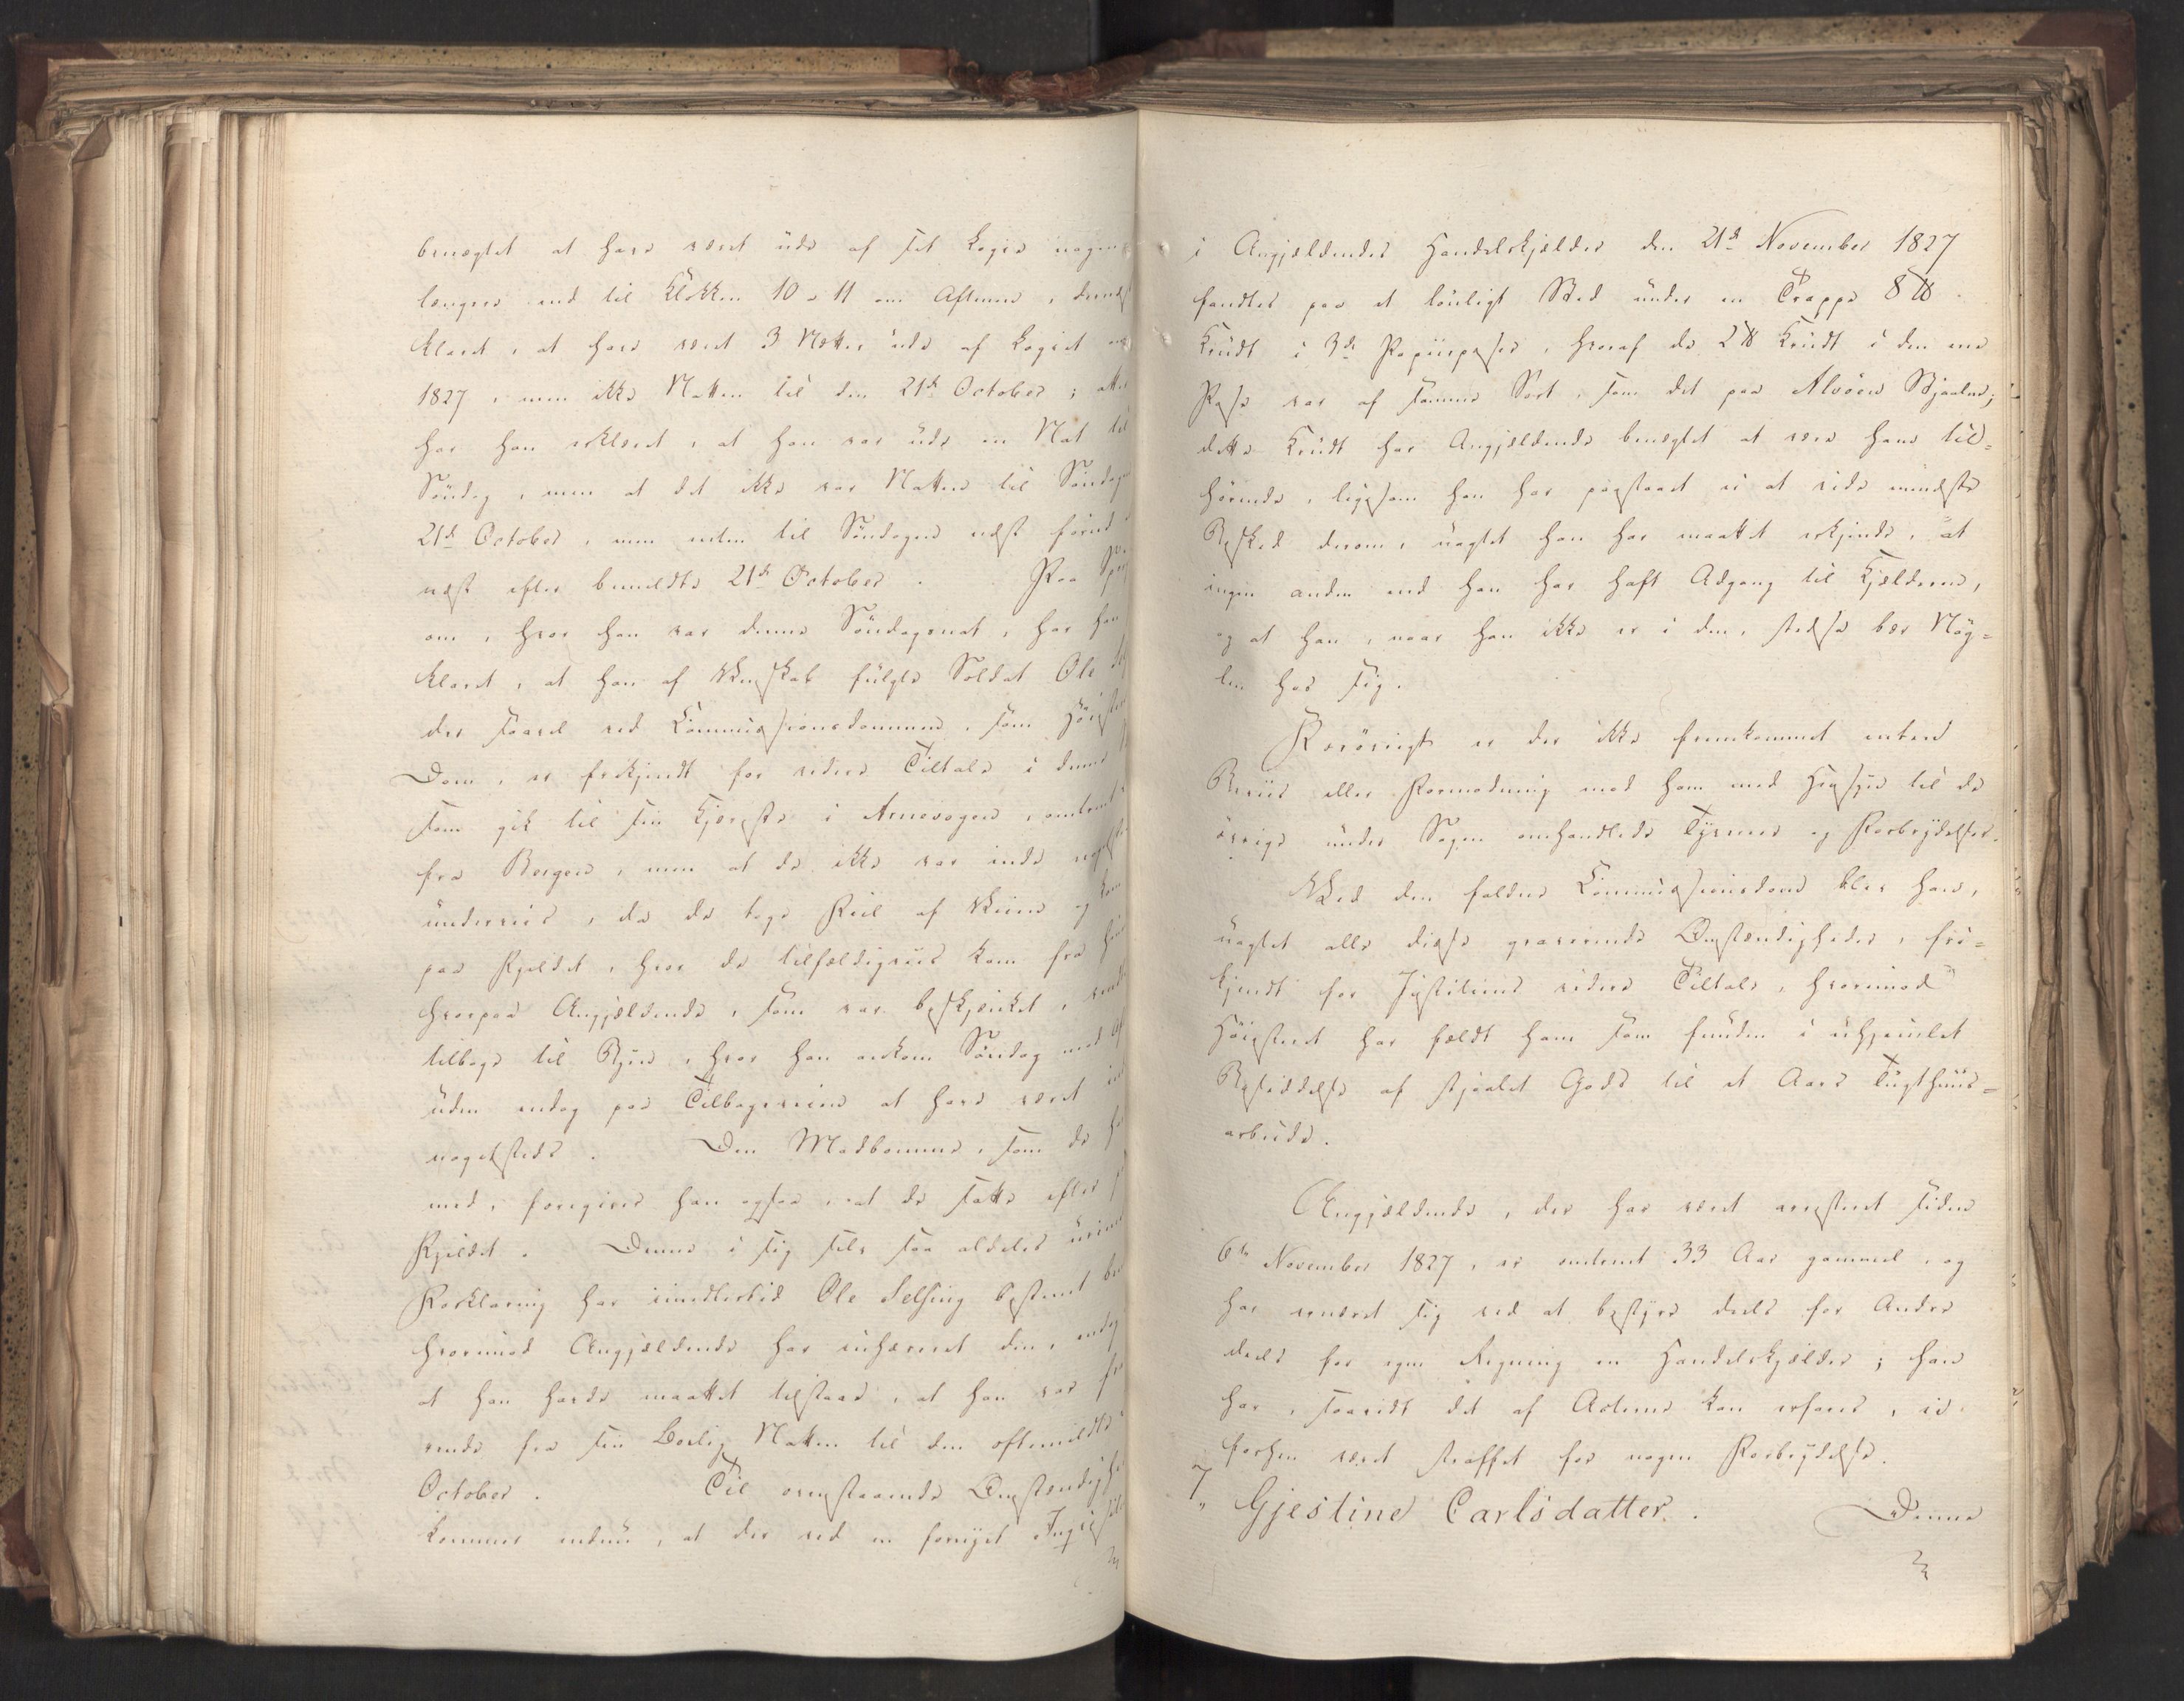 benægtet at have været ude af sit Logie nogen
længere end til Klokken 10 a 11 om Aftenen, dernæst
klaret, at have været 3 Nætter ude af Logiet
1827, men ikke Natten til den 21de October; atter
har han erklæret, at han var ude en Nat til
Söndag, men at det ikke var Natten til Söndagen
21de October, men enten til Söndagen næst förend
næst efter bemeldte 21de October. Paa
om, hvor han var denne Söndagsnat, har han
klaret, at han af Venskab fulgte Soldat Ole
der saavel ved Commissionsdommen, som Höiesteret
Dom, er frikjendt for videre Tiltale i denne
som gik til sin Kjæreste i Arnevogen, omtrent
fra Bergen, men at de ikke var inde nogetsteds
underveis, da de toge Feil af Veien og kom
paa Fjeldet, hvor de tilfældigviis kom fra
hvorpaa Angjældende, som var beskjænket, vendte
tilbage til Byen, hvor han ankom Söndag
uden endog paa Tilbageveien at have været
nogetsteds. Den Madbomme, som de
med, foregiver han ogsaa, at de satte efter
Fjeldet. Denne i sig selv saa aldeles
Forklaring har imidlertid Ole Selsing bestemt
hvorimod Angjældende har inhæreret den, endog
at han havde maattet tilstaae, at han var
rende fra sin Bolig Natten til den oftemeldte
October. Til ovenstaaende Omstændigheder
kommer endnu, at der ved en fornyet
i Angjældendes Handelskjælder den 21de November 1827
fandtes paa et lönligt Sted under en Trappe 8 ℔
Krudt i 3de Papiirposer, hvoraf de 2 ℔ Krudt i den ene
Pose var af samme Sort, som det paa Alvöen Stjaalne;
dette Krudt har Angjældende benægtet at være hans til=
hörende, ligesom han har paastaaet ei at vide mindste
Besked derom, uagtet han har maattet erkjende, at
ingen anden end han har haft Adgang til Kjælderen,
og at han, naar han ikke er i den, stedse bær Nög=
len hos sig.
Forövrigt er der ikke fremkommet enten
Beviis eller Formodning mod ham med Hensyn til de
övrige under Sagen omhandlede Tyverier og Forbrydelser.
Ved den faldne Commissionsdom blev han,
uagtet alle disse graverende Omstændigheder, fri=
kjendt for Justitiens videre Tiltale, hvorimod
Höiesteret har fældt ham som funden i uhjemlet
Besiddelse af stjaalet Gods til et Aars Tugthuus=
arbeide.
Angjældende, der har været arresteret siden
6te November 1827, er omtrent 33 Aar gammel, og
har ernæret sig ved at bestyre deels for Andre
deels for egen Regning en Handelskjælder; han
har, saavidt det af Acterne kan erfares, ei
forhen været straffet for nogen Forbrydelse.
7, Gjestine Carlsdatter. Denne